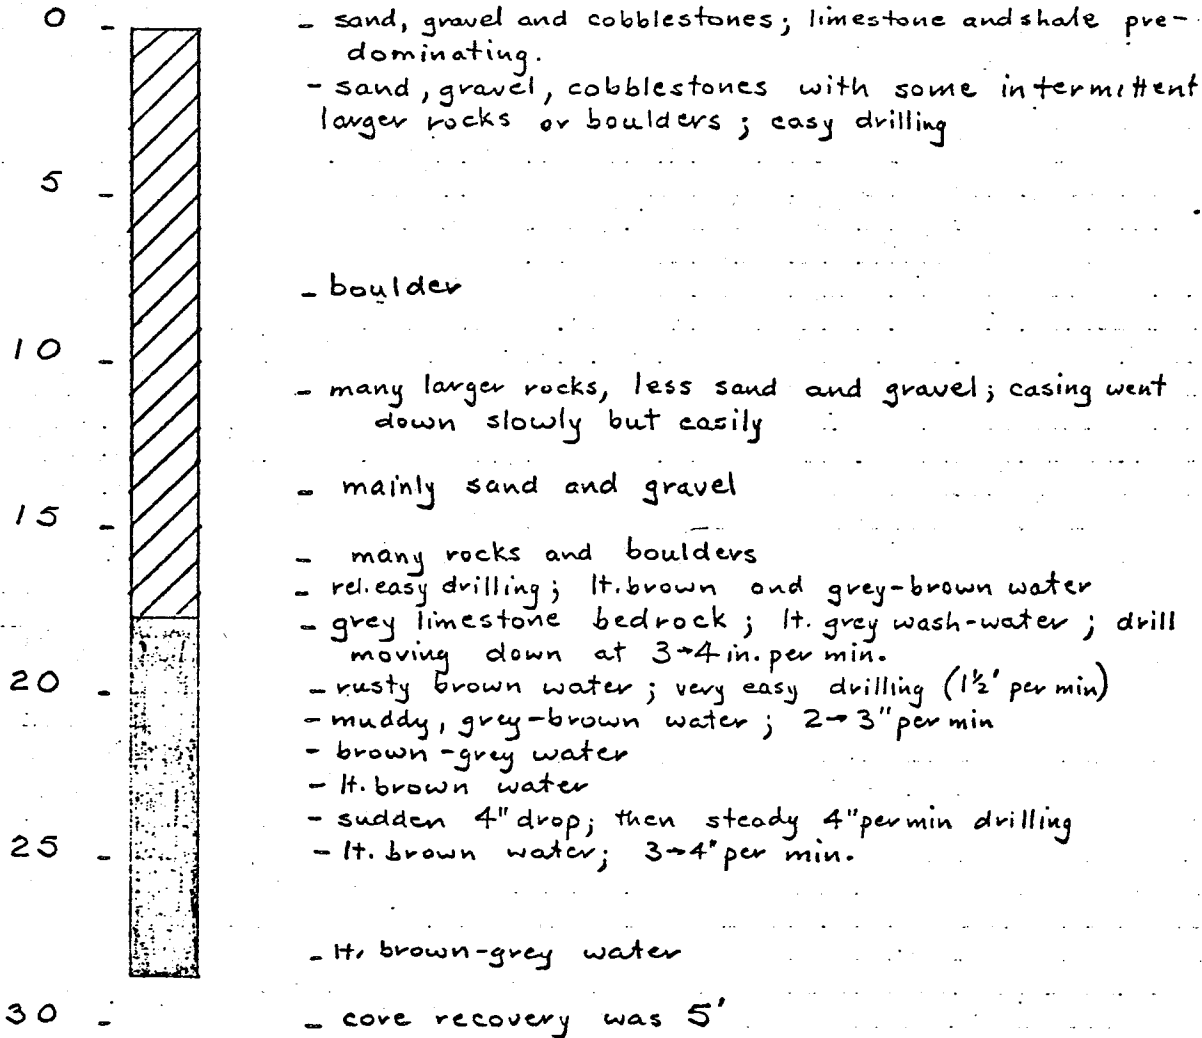 0 - - sand, gravel and cobblestones; limestone and shale pre-
dominating.
- sand, gravel, cobblestones with some intermittent
larger rocks or boulders; easy drilling
5 -
- boulder
10 -
- many larger rocks, less sand and gravel; casing went
down slowly but easily
- mainly sand and gravel
15 -
- many rocks and boulders
- rel. easy drilling; lt. brown and grey-brown water
- grey limestone bedrock; lt. grey wash-water; drill
moving down at 3→4 in. per min.
20 - - rusty brown water; very easy drilling (1½' per min)
- muddy, grey-brown water; 2→3" per min
- brown-grey water
- lt. brown water
- sudden 4" drop; then steady 4" per min drilling
25 - - lt. brown water; 3→4" per min.
- lt. brown-grey water
30 - - core recovery was 5'